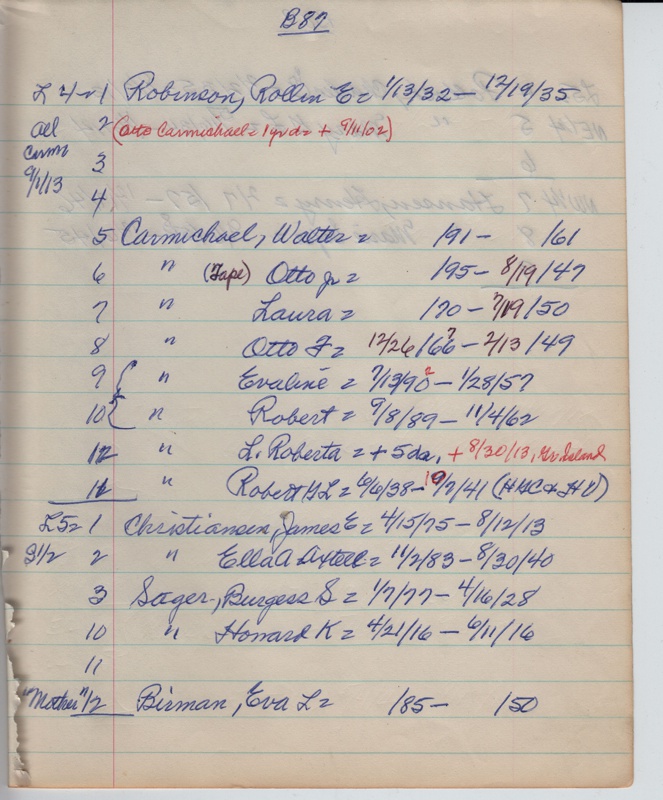 B87
L 4 = 1 Robinson, Rollin E = 1/13/32 — 12/19/35
all 2 (Otto Carmichael = 1 yr d = + 9/11/02)
Carm 3
9/1/13
4
5 Carmichael, Walter = /91 — /61
6 " (Tape) Otto Jr = /95 — 8/19/47
7 " Laura = /70 — 7/19/50
8 " Otto F = 12/26/66? — 2/13/49
9 { " Evaline = 7/13/90 2 — 1/28/57
10 { " Robert = 9/8/89 — 11/4/62
12 " L. Roberta = + 5 da, + 8/30/13, Gr. Island
11 " Robert G L = 6/6/38 — 10/2/41 (HGC & HD)
L5 = 1 Christiansen, James E = 4/15/75 — 8/12/13
S 1/2 2 " Ella A Axtell = 11/2/83 — 8/30/40
3 Sager, Burgess S = 1/7/77 — 4/16/28
10 " Howard K = 4/21/16 — 6/11/16
11
"Mother" 12 Birman, Eva L = /85 — /50